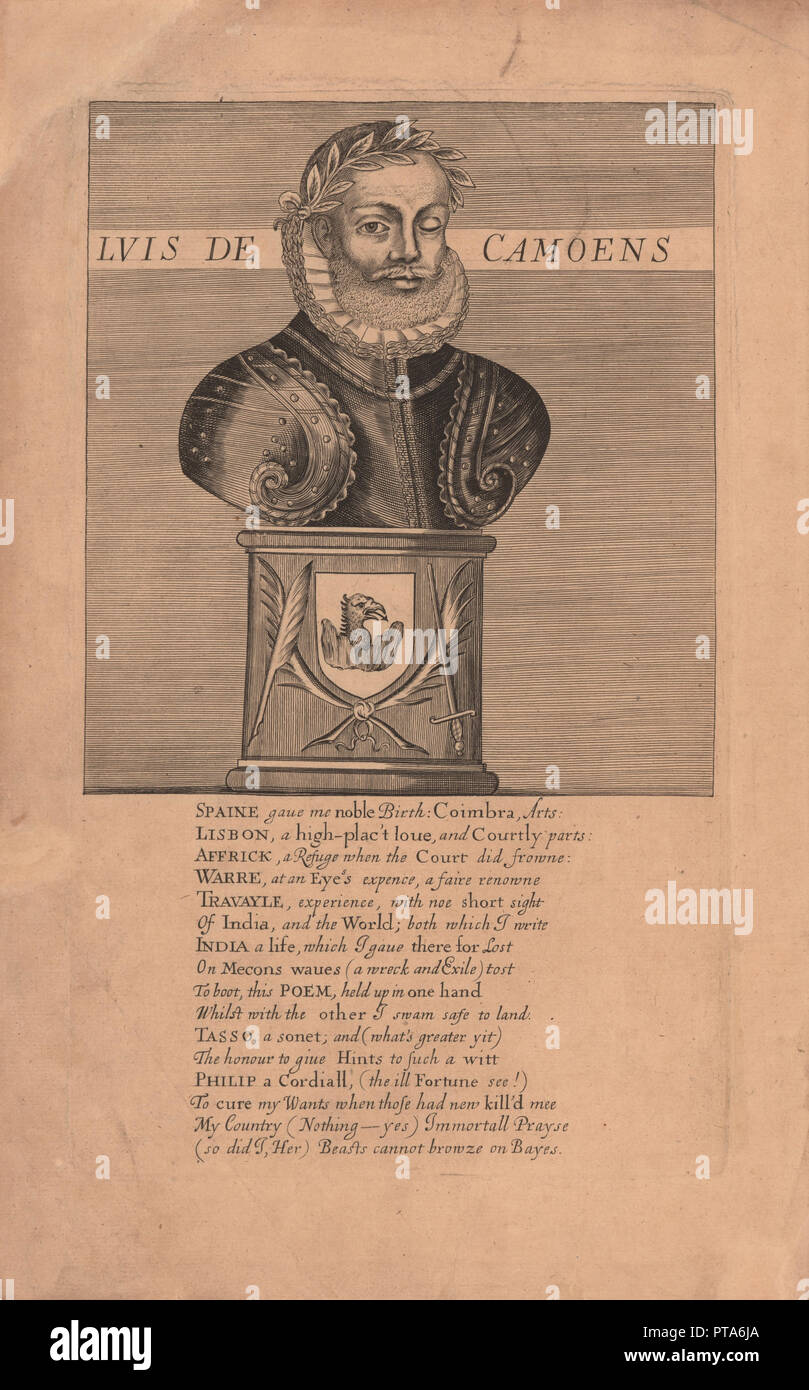 LVIS DE CAMOENS
SPAINE gaue me noble Birth: Coimbra, Arts:
LISBON, a high-plac't loue, and Courtly parts:
AFFRICK, a Refuge when the Court did frowne:
WARRE, at an Eye's expence, a faire renowne
TRAVAYLE, experience, with noe short sight
Of India, and the World; both which I write
INDIA a life, which I gaue there for Lost
On Mecons waues (a wreck and Exile) tost
To boot, this POEM, held up in one hand
Whilst with the other I swam safe to land.
TASSO, a sonet; and (what's greater yit)
The honour to giue Hints to such a witt
PHILIP a Cordiall, (the ill Fortune see!)
To cure my Wants when those had new kill'd mee
My Country (Nothing—yes) Immortall Prayse
(so did I, Her) Beasts cannot browze on Bayes.
alamy
alamy stock photo
PTA6JA
www.alamy.com